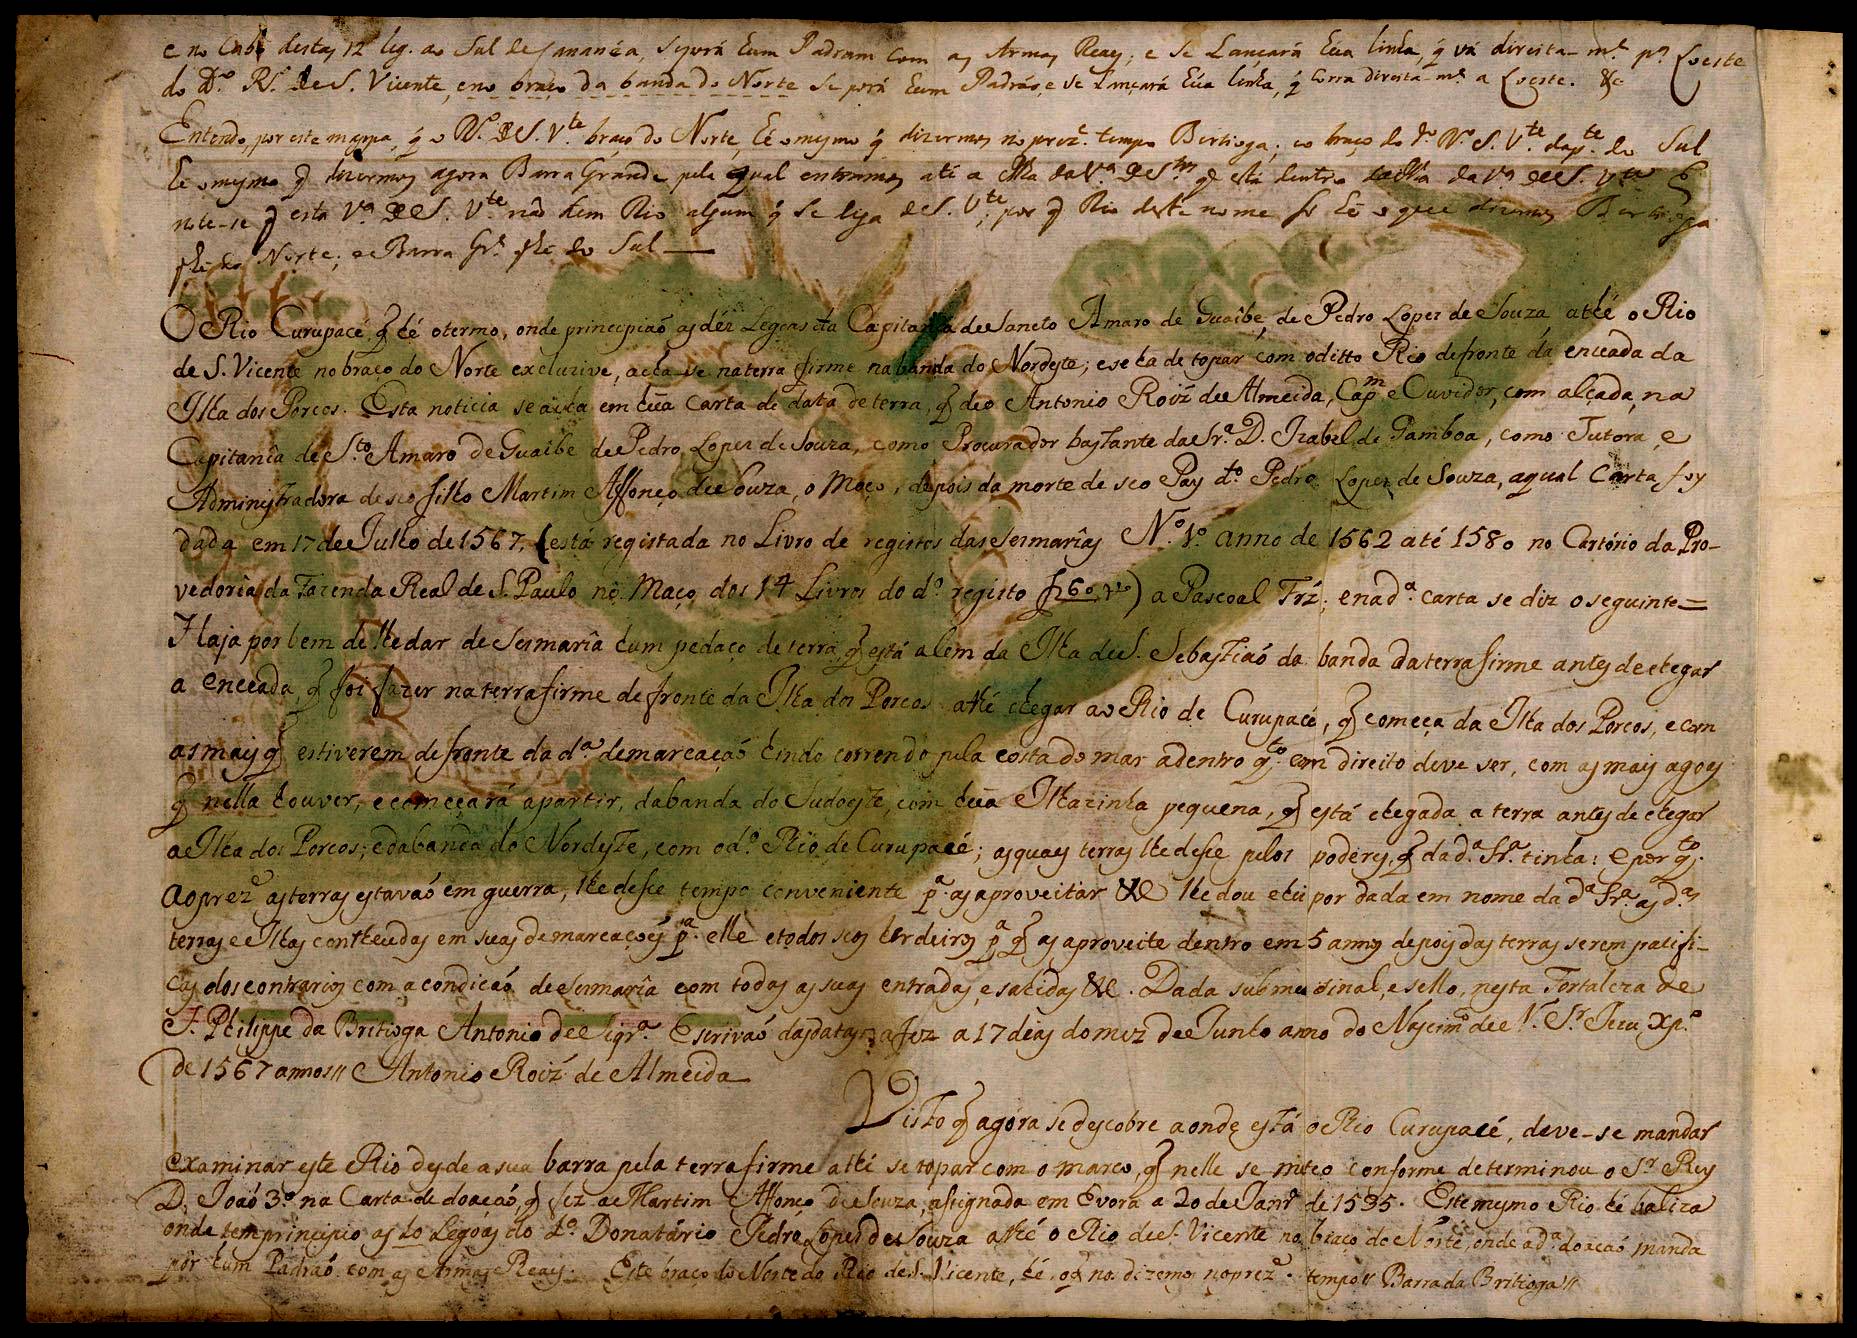 e no Cabo destas 12 leg. ao Sul de Cananéa, se porá hum Padram com as Armas Reaes, e se Lançará hũa linha, q̃ vá direita-mᵉ. pª. Loeste
do Dº. Rº. de S. Vicente, e no braço da banda do Norte se porá hum Padrão, e se Lançará hũa linha, q̃ corra direita-mᵉ. a Loeste. &c
Entendo, por este mappa, q̃ o Rº. de S. Vᵗᵉ. braço do Norte, hé o mesmo q̃ dizermos no prezᵉ. tempo Bertioga; e o braço do dº. Rº. S. Vᵗᵉ. da pᵗᵉ. do Sul
hé o mesmo q̃ dizermos agora Barra Grande pela qual entramos até a Vª. de Sᵗᵒˢ q̃ está dentro da Vª. de S. Vᵗᵉ
note-se q̃ esta Vª. de S. Vᵗᵉ. não tem Rio algum q̃ se diga de S. Vᵗᵉ; por q̃ Rio deste nome só hé o que dizemos Bertioga
do Norte; e Barra Grᵉ. do Sul —
O Rio Curupacé, q̃ hé o termo, onde principiaõ as déz Legoas da Capitanîa de Sancto Amaro de Guaîbe, de Pedro Lopez de Souza athé o Rio
de S. Vicente no braço do Norte excluzive, acha-se na terra firme na banda do Nordeste; e se ha de topar com o ditto Rio defronte da enceada da
Ilha dos Porcos. Esta noticia se acha em hũa Carta de data de terra, q̃ deo Antonio Roiz̃ de Almeida, Capᵐ e Ouvidor, com alçada, na
Capitanîa de Sᵗᵒ Amaro de Guaîbe de Pedro Lopez de Souza, como Procurador bastante da Srª. D. Izabel de Gamboa, como Tutora, e
Administradora de seo filho Martim Affonço de Souza, o Moço, depois da morte de seo Pay dᵗᵒ. Pedro Lopez de Souza, a qual Carta foy
dada em 17 de Julho de 1567, (está registada no Livro de registos das Sesmarîas Nº. 1º. anno de 1562 até 1580 no Cartório da Pro-
vedoria da Fazenda Real de S. Paulo no Maço dos 14 Livros do dº. registo f. 60 vº) a Pascoal Frz̃; e na dª. carta se diz o seguinte =
Haja por bem de lhe dar de Sesmarîa hum pedaço de terra, q̃ está além da Ilha de S. Sebastiaõ da banda da terra firme antes de chegar
a enceada, q̃ foi fazer na terra firme defronte da Ilha dos Porcos athé chegar ao Rio de Curupacé, q̃ começa da Ilha dos Porcos, e com
as mais q̃ estiverem defronte da dª. demarcaçaõ hindo correndo pela costa do mar adentro qᵗᵒ. em direito deve ser, com as mais agoas
q̃ nella houver, e começará a partir, da banda do Sudoeste, com hũa Ilhazinha pequena, q̃ está chegada a terra antes de chegar
a Ilha dos Porcos; e da banda do Nordeste, com o dº. Rio de Curupacé; as quaes terras lhe desse pelos poderes, q̃ da dª. Srª. tinha: e por qᵗᵒ.
ao prezᵉ as terras estavaõ em guerra, lhe desse tempo conveniente pª. as aproveitar &c lhe dou e hei por dada em nome da dª Srª. as dªˢ
terras e Ilhas contheudas em suas demarcaçoẽs pª. elle e todos seos herdeiros pª q̃ as aproveite dentro em 5 annos depois das terras serem pacifi-
cas dos contrarios com a condicaõ de Sesmarîa com todas as suas entradas, e sahidas &c. Dada sub meu sinal, e sello, nesta Fortaleza de
S. Philippe da Britioga Antonio de Siqrª. Escrivaõ das datas a fez a 17 dias do mez de Junho anno do Nascimᵗᵒ de N. Sʳ Jesu Xpº.
de 1567 annos // Antonio Roiz̃ de Almeida
Visto q̃ agóra se descobre aonde está o Rio Curupacé, deve-se mandar
examinar este Rio desde a sua barra pela terra firme athé se topar com o marco, q̃ nelle se meteo conforme determinou o Sʳ Rey
D. Joaõ 3º na Carta de doaçaõ, q̃ fez a Martim Affonço de Souza, assignada em Evora a 20 de Janrº de 1535. Este mesmo Rio hé baliza
onde tem principio as 10 Legoas do dº. Donatário Pedro Lopez de Souza athé o Rio de S. Vicente no braço do Nórte, onde a dª. doaçaõ manda
pôr hum Padraõ com as Armas Reaes. Este braço do Norte do Rio de S. Vicente, hé, o q̃ nos dizemos no prezᵉ. tempo // Barra da Britioga //